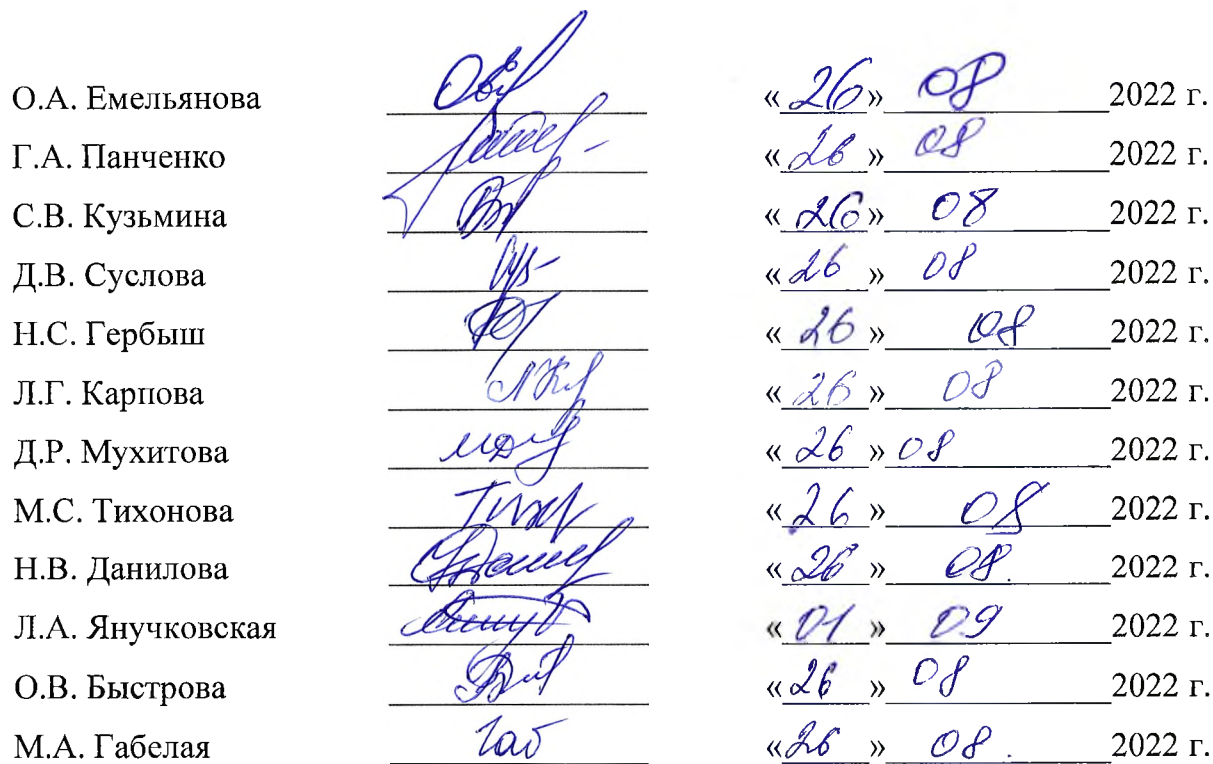 О.А. Емельянова «26» 08 2022 г.
Г.А. Панченко «26» 08 2022 г.
С.В. Кузьмина «26» 08 2022 г.
Д.В. Суслова «26» 08 2022 г.
Н.С. Гербыш «26» 08 2022 г.
Л.Г. Карпова «26» 08 2022 г.
Д.Р. Мухитова «26» 08 2022 г.
М.С. Тихонова «26» 08 2022 г.
Н.В. Данилова «26» 08. 2022 г.
Л.А. Янучковская «01» 09 2022 г.
О.В. Быстрова «26» 08 2022 г.
М.А. Габелая Габ «26» 08. 2022 г.